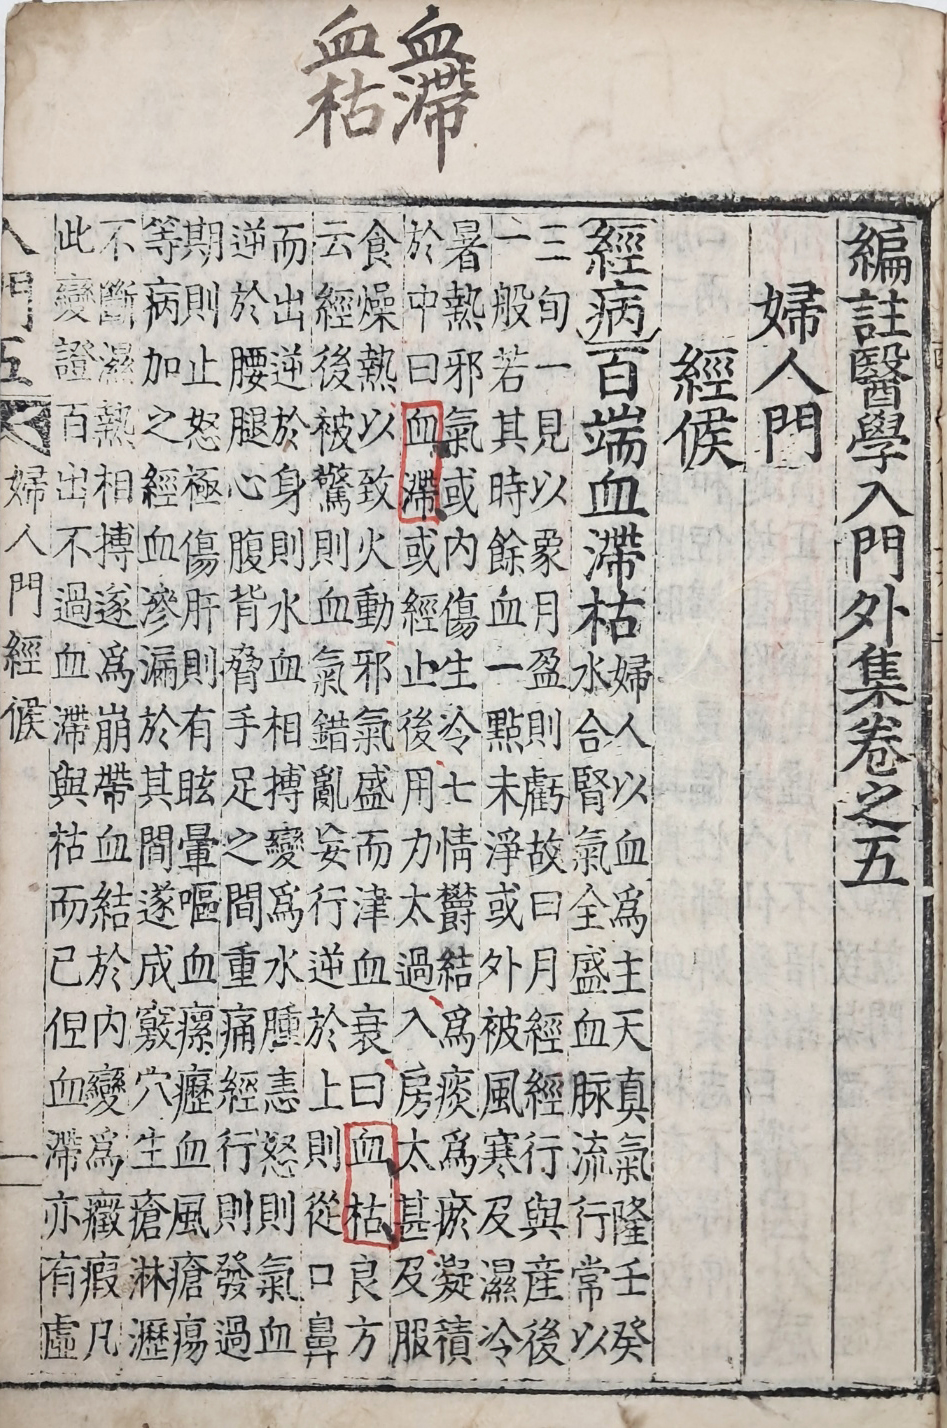 血滯
血枯
編註醫學入門外集卷之五
婦人門
經候
經病百端血滯枯
婦人以血爲主天真氣隆壬癸
水合腎氣全盛血脉流行常以
三旬一見以象月盈則虧故曰月經經行與産後
一般若其時餘血一點未淨或外被風寒及濕冷
暑熱邪氣或內傷生冷七情欝結爲痰爲瘀凝積
於中曰血滯或經止後用力太過入房太甚及服
食燥熱以致火動邪氣盛而津血衰曰血枯良方
云經後被驚則血氣錯亂妄行逆於上則從口鼻
而出逆於身則水血相搏變爲水腫恚怒則氣血
逆於腰腿心腹背脅手足之間重痛經行則發過
期則止怒極傷肝則有眩暈嘔血瘰癧血風瘡瘍
等病加之經血滲漏於其間遂成竅穴生瘡淋瀝
不斷濕熱相搏遂爲崩帶血結於內變爲癥瘕凡
此變證百出不過血滯與枯而已但血滯亦有虛
入門五 婦人門經候 一